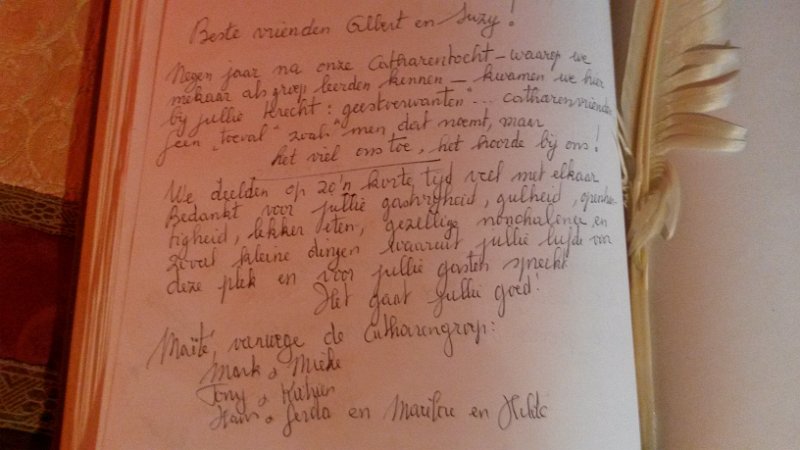 Beste vrienden Albert en Suzy!
Negen jaar na onze Catharentocht – waarop we
mekaar als groep leerden kennen – kwamen we hier
bij jullie terecht: "geestverwanten"... catharenvrienden
geen "toeval" zoals men dat noemt, maar
het viel ons toe, het hoorde bij ons!
We deelden op zo'n korte tijd veel met elkaar
Bedankt voor jullie gastvrijheid, gulheid, openhar-
tigheid, lekker eten, gezellige nonchalance en
zoveel kleine dingen waaruit jullie liefde voor
deze plek en voor jullie gasten spreekt.
Het gaat jullie goed!
Maïté, vanwege de Catharengroep:
Mark & Mieke
Tony &
Hans & Gerda en en Hilde